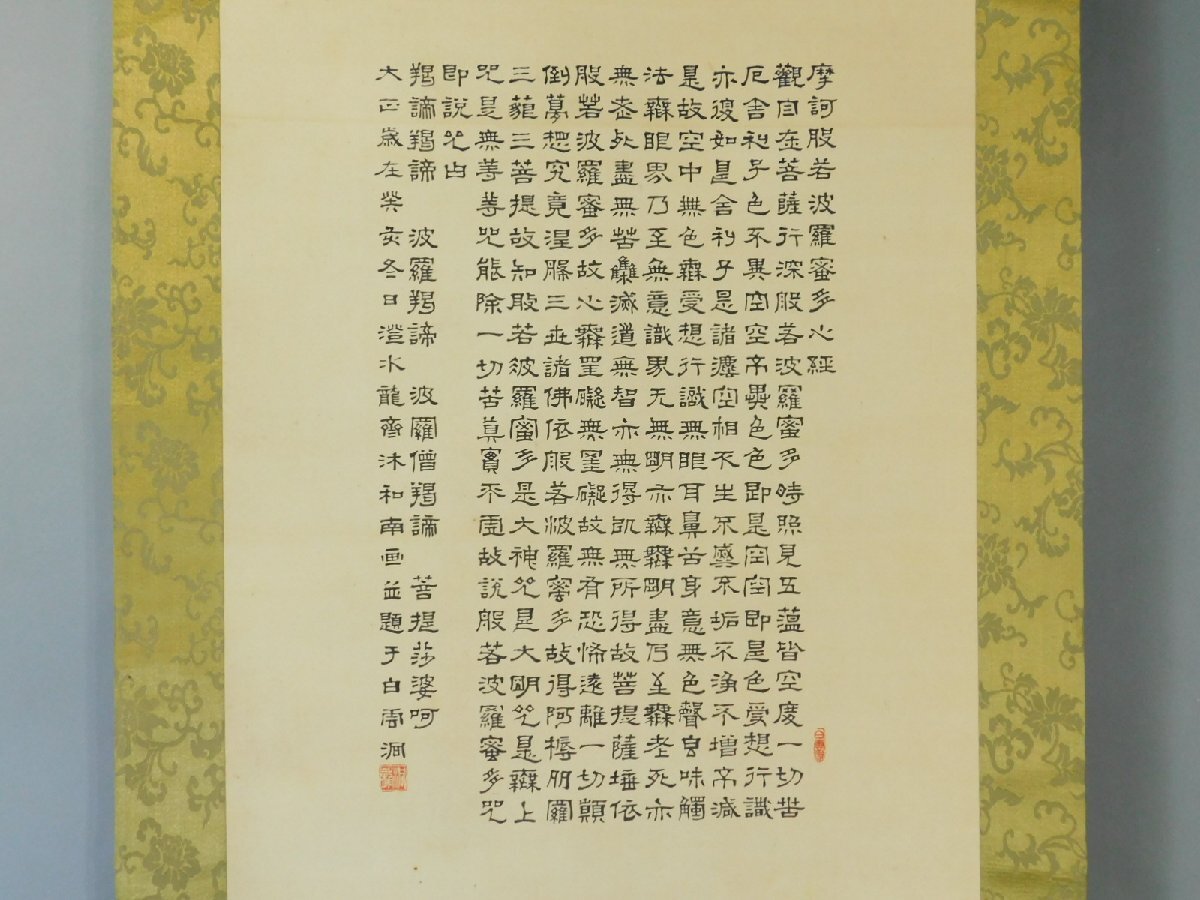 摩訶般若波羅蜜多心経
觀自在菩薩行深般若波羅蜜多時照見五蘊皆空度一切苦
厄舍利子色不異空空不異色色即是空空即是色受想行識
亦復如是舍利子是諸法空相不生不滅不垢不淨不增不減
是故空中無色無受想行識無眼耳鼻舌身意無色聲香味觸
法無眼界乃至無意識界无無明亦無無明盡乃至無老死亦
無老死盡無苦集滅道無智亦無得以無所得故菩提薩埵依
般若波羅蜜多故心無罣礙無罣礙故無有恐怖遠離一切顛
倒夢想究竟涅槃三世諸佛依般若波羅蜜多故得阿耨多羅
三藐三菩提故知般若波羅蜜多是大神咒是大明咒是無上
咒是無等等咒能除一切苦真實不虛故說般若波羅蜜多咒
即說咒曰
羯諦羯諦 波羅羯諦 波羅僧羯諦 菩提莎婆呵
大正歲在癸亥冬日澄水龍齋沐和南画並題于白洞